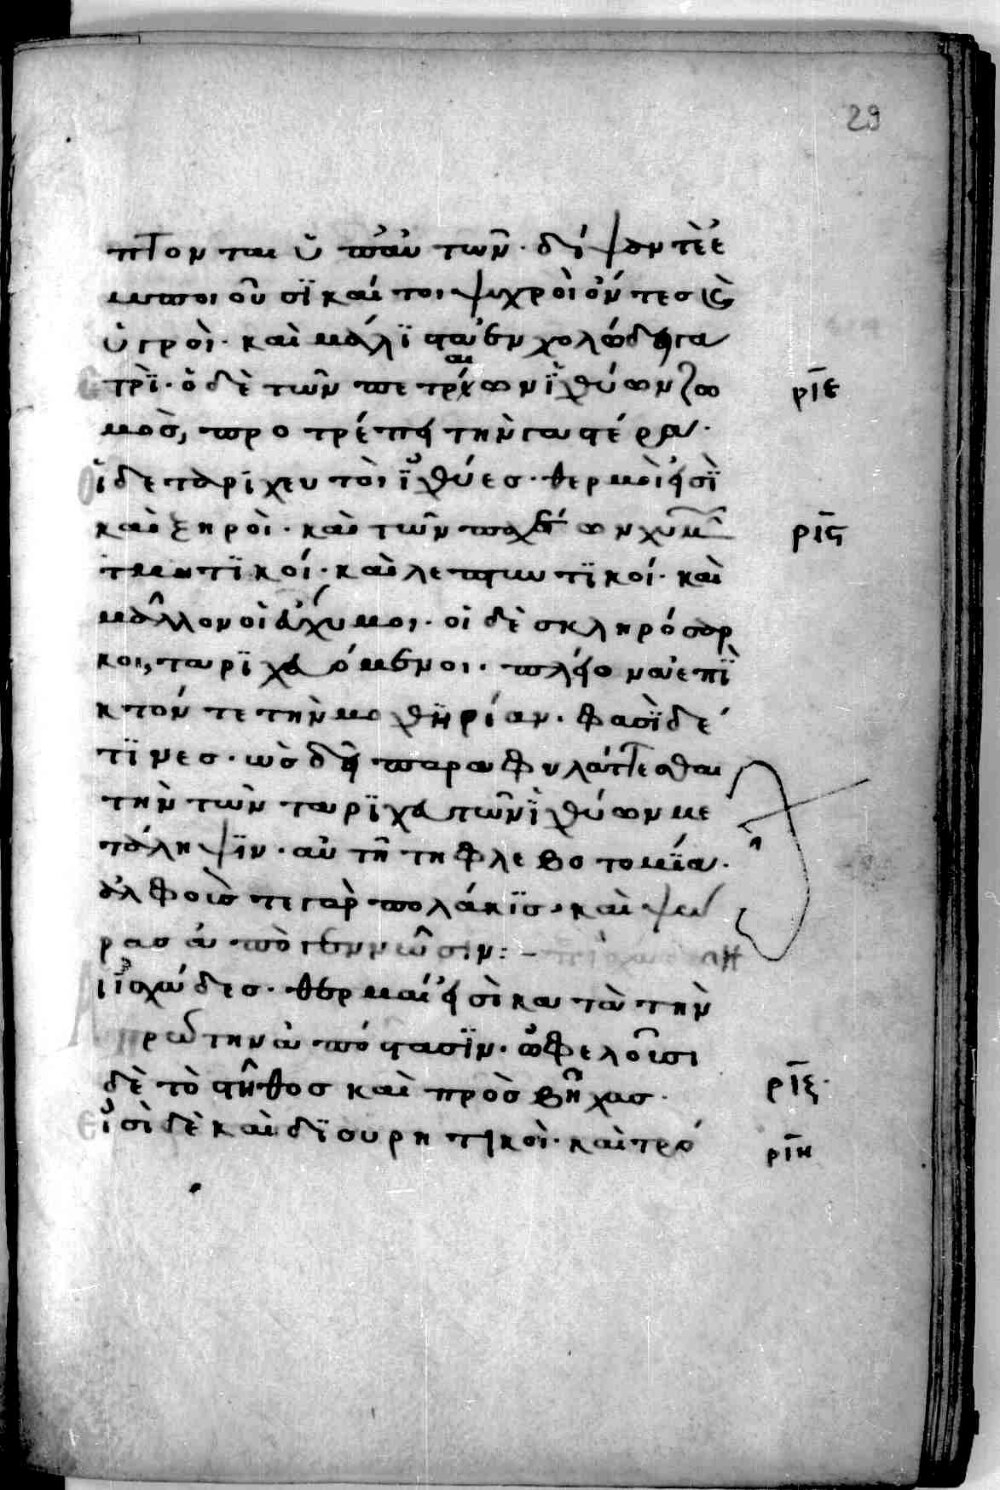 29
πτονται ὑπ' αὐτῶν. δίψαν τὲ ἐ
μποιοῦσϊ καίτοι ψυχροὶ ὄντες καὶ
ὑγροὶ. καὶ μάλϊστα ἐν χολώδη γα
στρϊ. ὁ δὲ τῶν πετραίων ϊχθύων ζω
μὸς, προτρέπει τὴν γαστέρα.
Οἱ δὲ ταρϊχευτοὶ ϊχθύες. θερμοὶ εἰσϊ
καὶ ξηροὶ. καὶ τῶν παχέων χυμῶν
τμητϊκοί. καὶ λεπτυντϊκοί. καὶ
μᾶλλον οἱ ἄχυμοι. οἱ δὲ σκληρόσαρ
κοι, ταρϊχευόμενοι. πλείονα ἐπϊ
κτόν τε τὴν μοχθηρίαν. φασϊ δέ
τϊνες. ὡς δεῖ παραφυλάττεσθαι
τὴν τῶν ταρϊχευτῶν ϊχθύων με
τάληψϊν. αὐτῆ τῆ φλεβοτομϊα.
ἀλφούς τε γὰρ πολάκϊς καὶ ψώ
ρας ἀπογεννῶσιν:–
Αἱ ϊσχάδες. θερμαί εἰσὶ κατὰ τὴν
πρώτην ἀπόστασϊν. ὠφελοῦσι
δὲ τὸ στῆθος καὶ πρὸς βῆχας.
Εἰσὶ δὲ καὶ δϊουρητικοὶ. καὶ τρό
ριε
ριϛ
ριζ
ριη